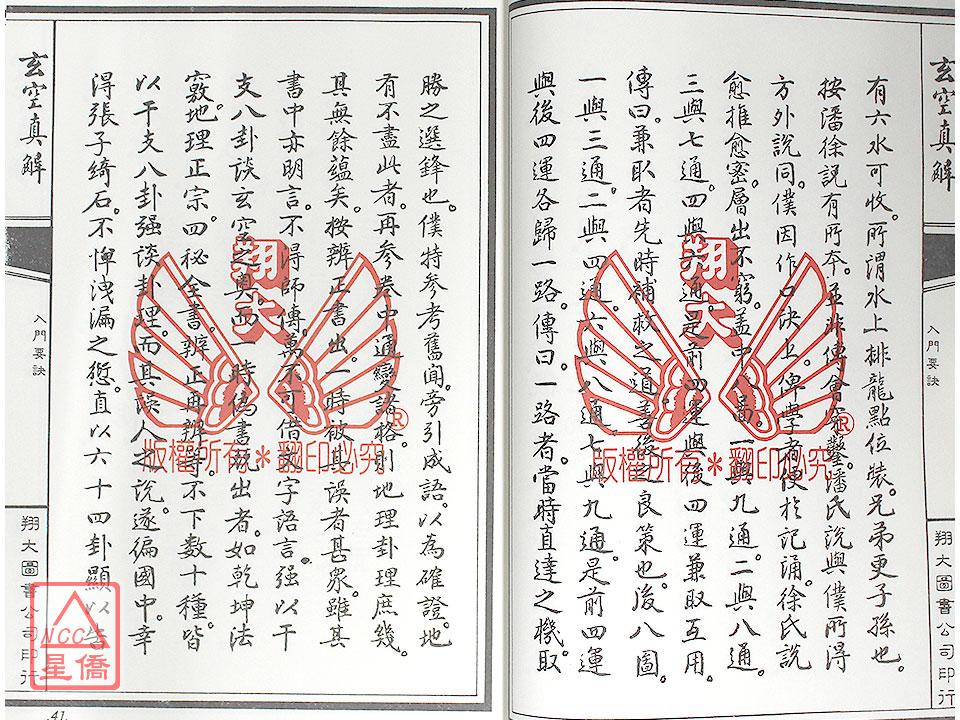 玄空真解
入門要訣
翔大圖書公司印行
有六水可收。所謂水上排龍點位裝。兄弟更子孫也。
按潘徐説有所本。並非傅會穿鑿。潘氏説與僕所得
方外説同。僕因作口訣上。俾學者便於記誦。徐氏説
愈推愈密。層出不窮。蓋中八局。一與九通。二與八通。
三與七通。四與六通。是前四運與後四運兼取互用。
傳曰。兼取者先時補救之道善後之良策也。後八圖。
一與三通。二與四通。六與八通七與九通。是前四運
與後四運各歸一路。傳曰。一路者。當時直達之機取
勝之選鋒也。僕特參考舊聞。旁引成語。以為確證。地
有不盡此者。再參卷中通變諸格。則地理卦理庶幾
其無餘蘊矣。按辨正書出。一時被其誤者甚眾。雖其
書中亦明言。不得師傳。萬不可借數字語言。强以干
支八卦談玄空之奧。而一時偽書所出者。如乾坤法
竅。地理正宗。四秘全書。辨正再辨等。不下数十種。皆
以干支八卦强談卦理。而其誤人之説。遂徧國中。幸
得張子綺石。不憚洩漏之愆。直以六十四卦顯以告
玄空真解
入門要訣
翔大圖書公司印行
.41.
翔大
®
版權所有*翻印必究
翔大
®
版權所有*翻印必究
NCC
星僑